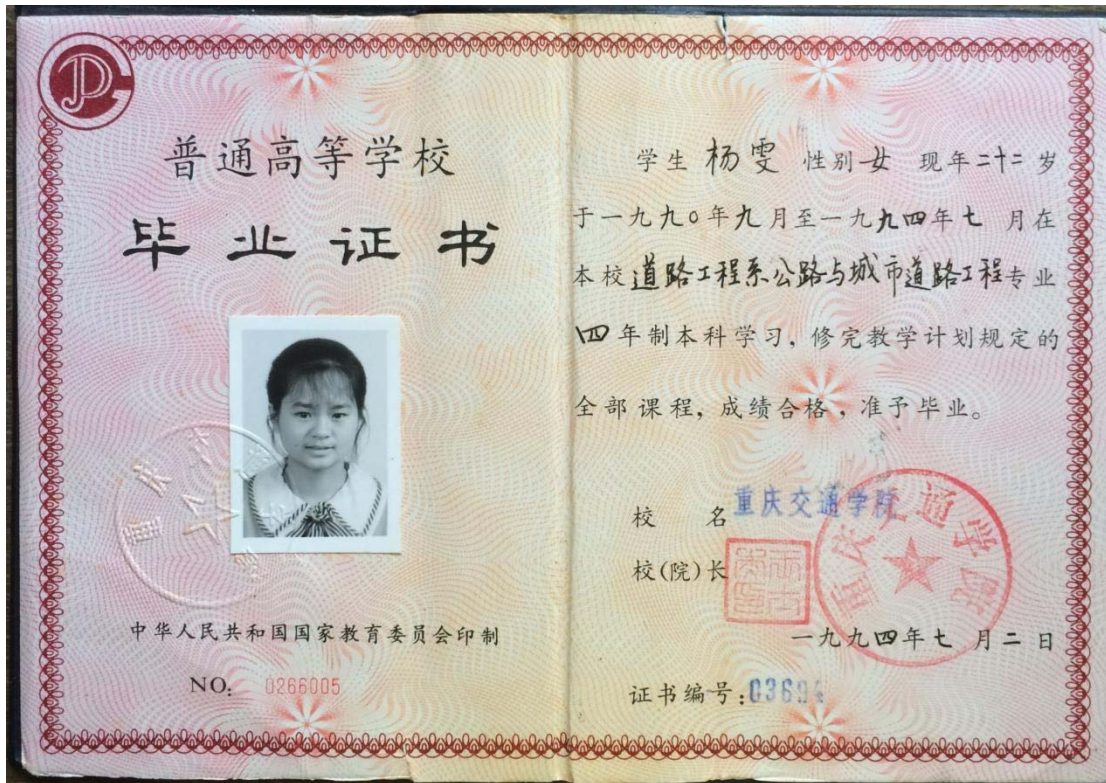 普通高等学校
毕业证书
中华人民共和国国家教育委员会印制
NO: 0266005
学生 杨雯 性别 女 现年二十二岁
于一九九〇年九月至一九九四年七 月在
本校道路工程系公路与城市道路工程专业
四年制本科学习，修完教学计划规定的
全部课程，成绩合格，准予毕业。
校 名 重庆交通学院
校(院)长
重庆交通学院
一九九四年七 月二日
证书编号: